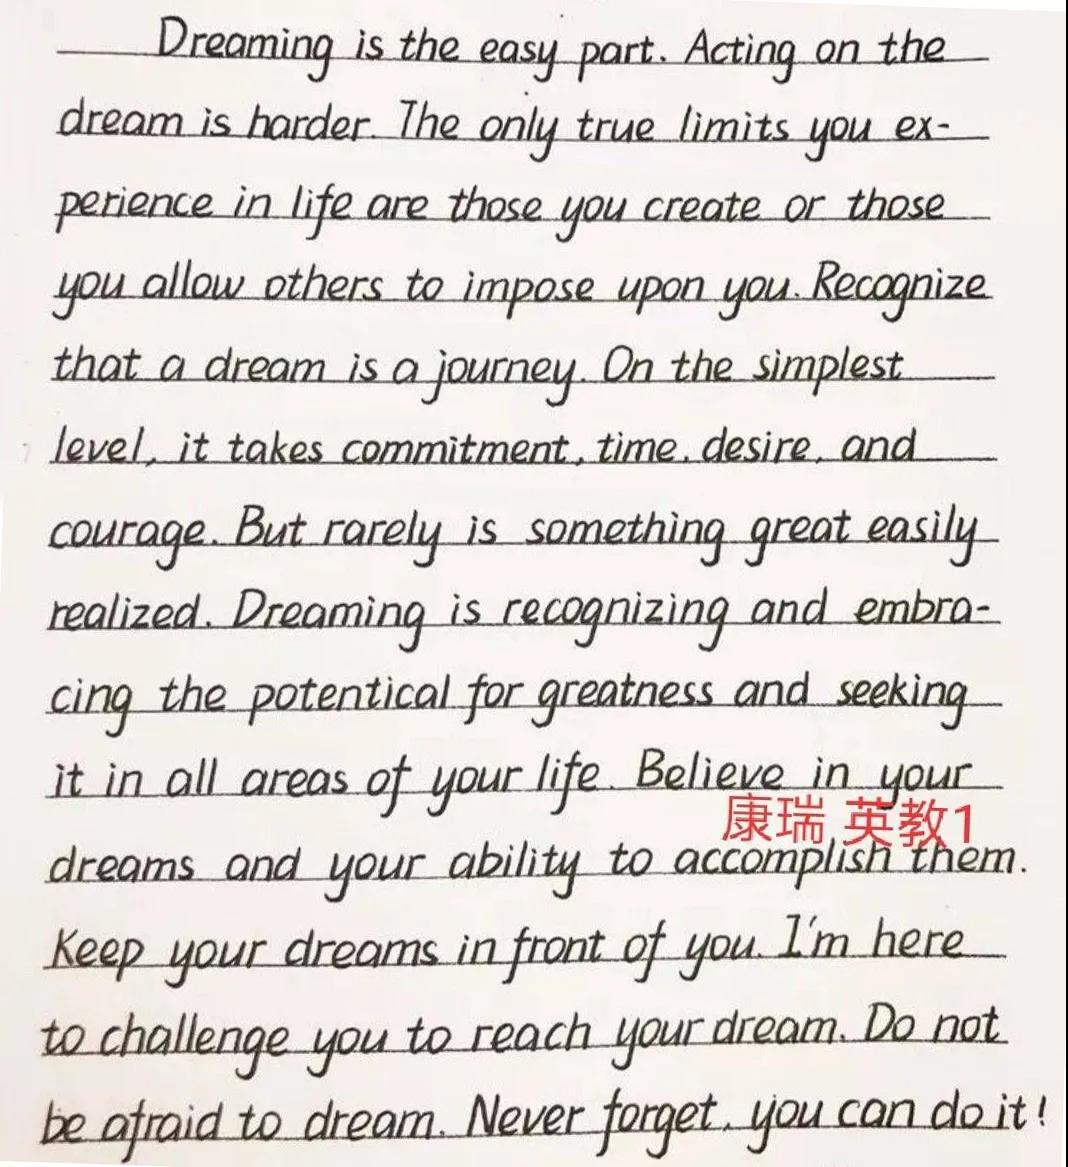 Dreaming is the easy part. Acting on the
dream is harder. The only true limits you ex-
perience in life are those you create or those
you allow others to impose upon you. Recognize
that a dream is a journey. On the simplest
level, it takes commitment, time, desire, and
courage. But rarely is something great easily
realized. Dreaming is recognizing and embra-
cing the potentical for greatness and seeking
it in all areas of your life. Believe in your
康瑞 英教1
dreams and your ability to accomplish them.
Keep your dreams in front of you. I'm here
to challenge you to reach your dream. Do not
be afraid to dream. Never forget, you can do it!